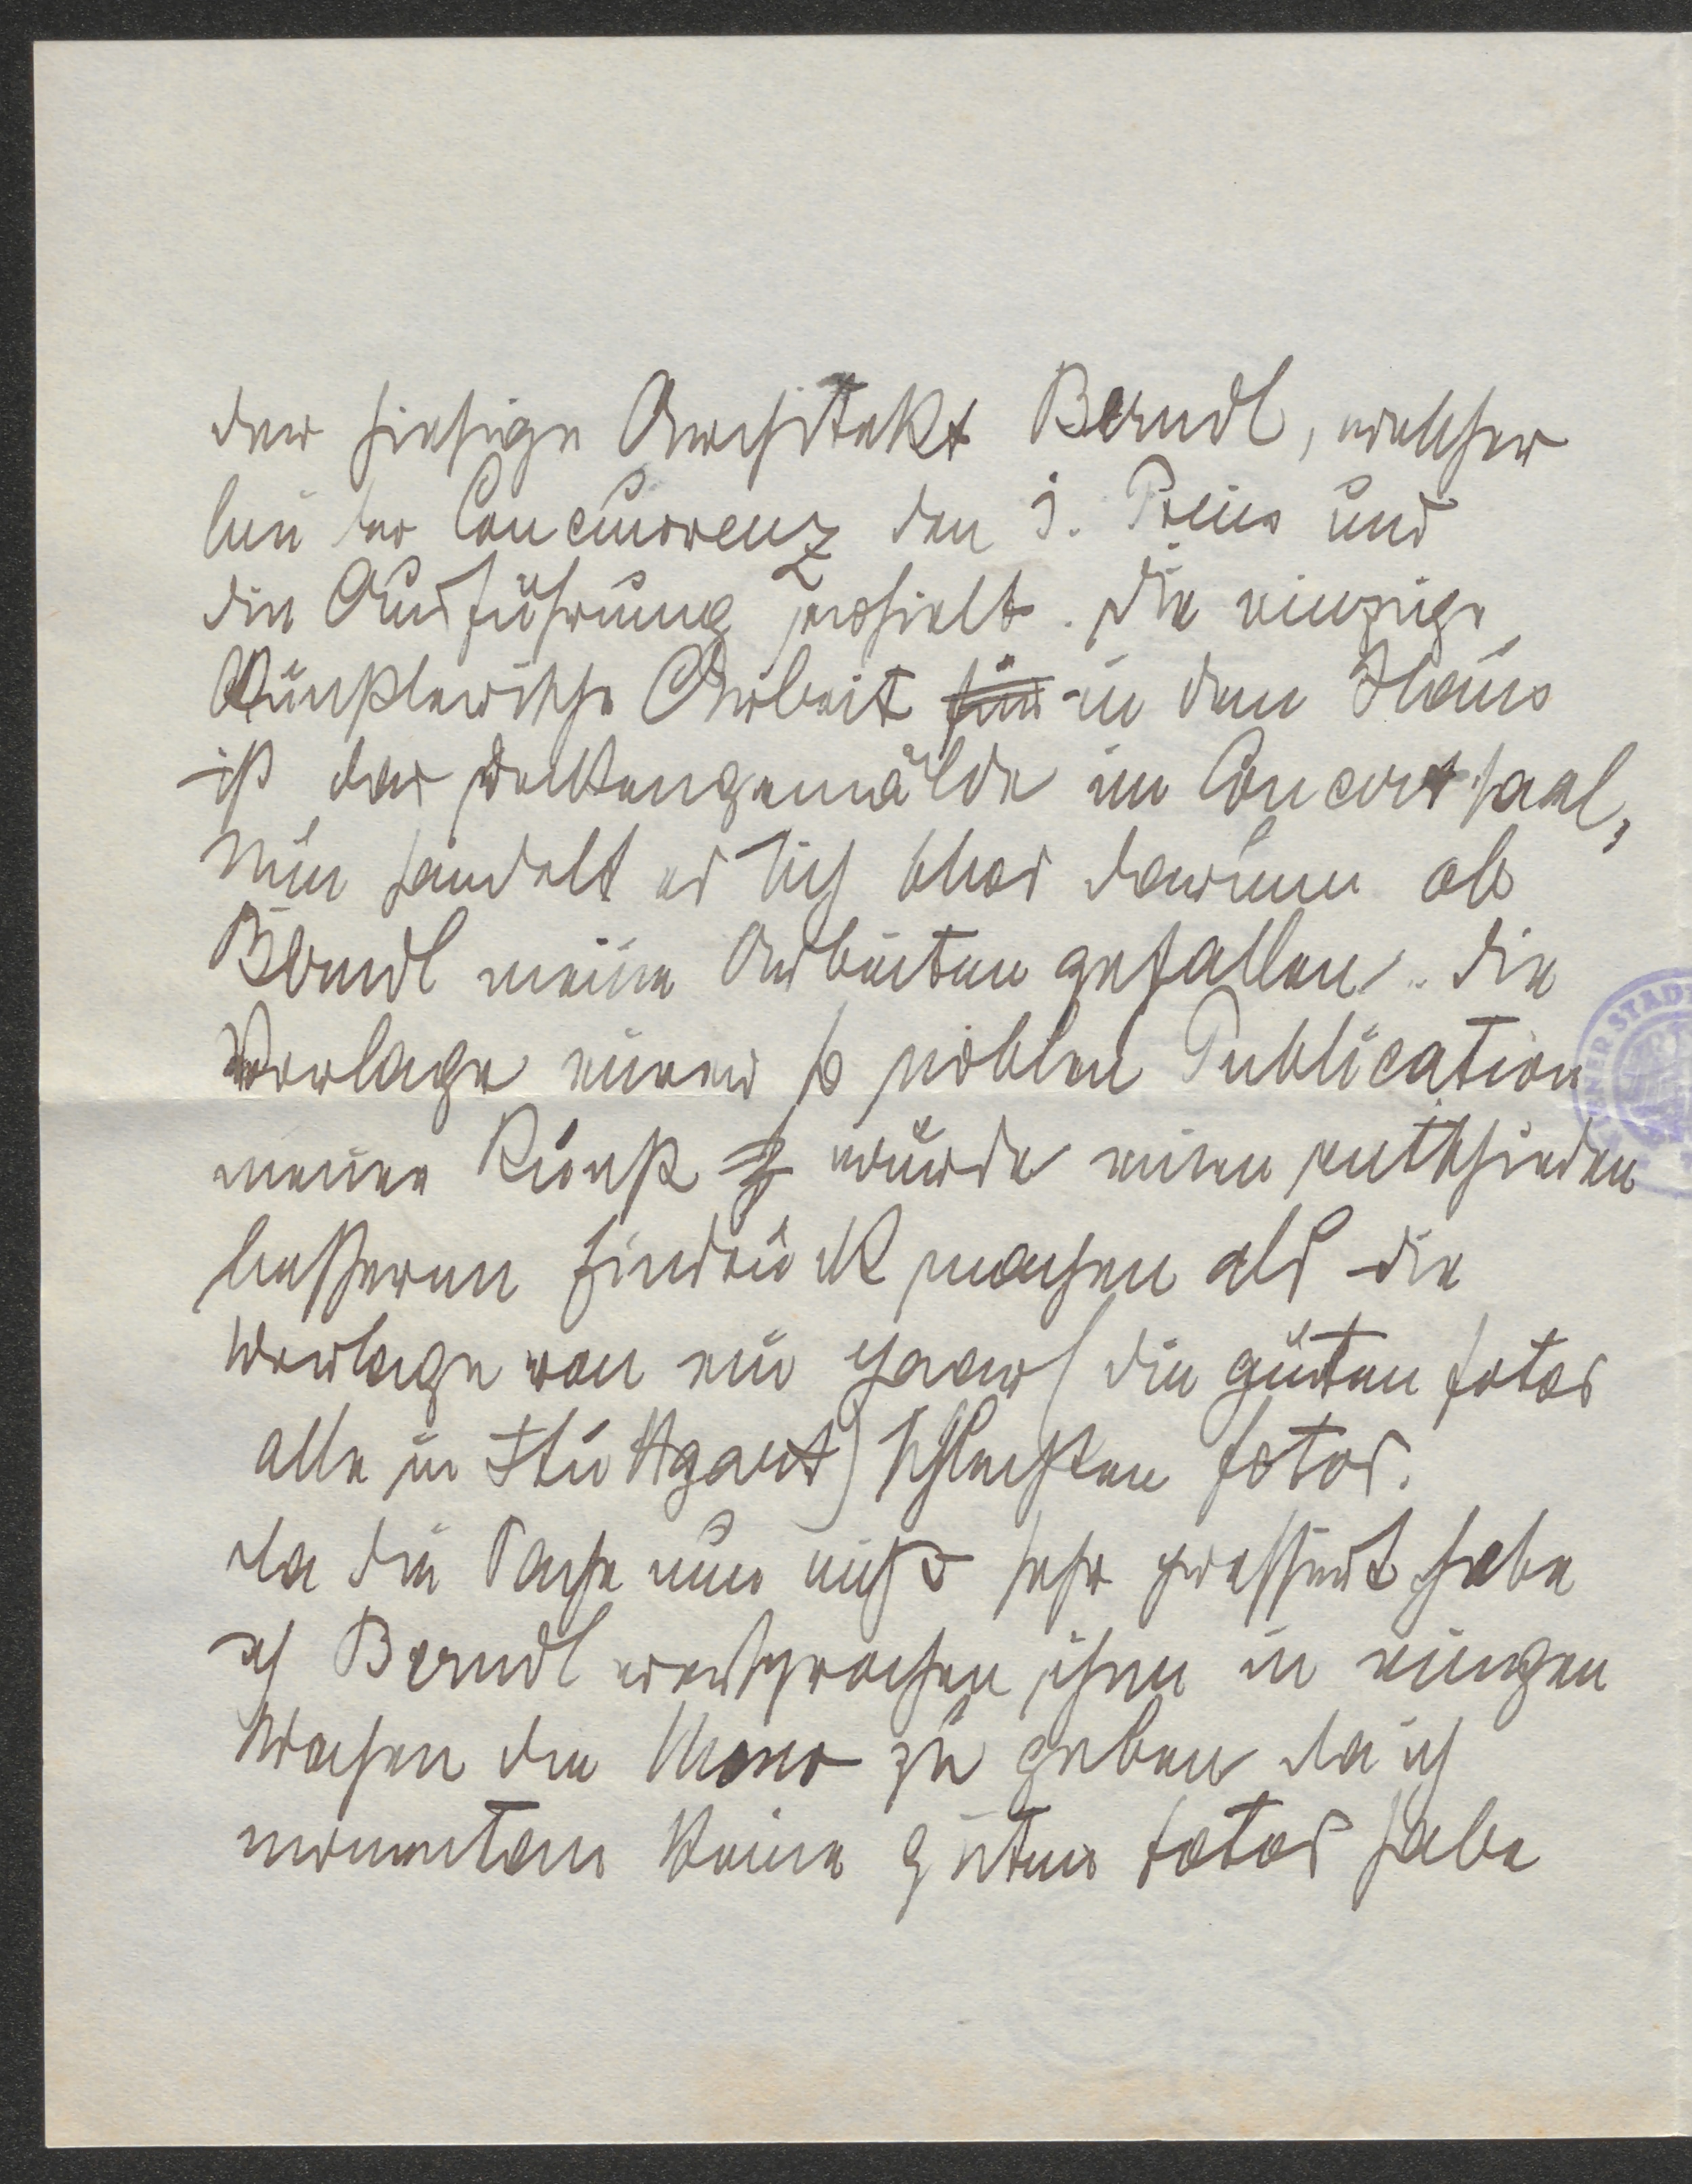 der hiesige Architekt Berndl, welcher
bei der Concurrenz den I. Preis und
die Ausführung erhielt. Die einzige
künstlerische Arbeit für in dem Haus
ist das Deckengemälde im Concertsaal,
Nun handelt es sich blos darum ob
Berndl meine Arbeiten gefallen. Die
Vorlage einer so noblen Publication
meiner Kunst würde einen entschieden
besseren Eindruck machen als die
Vorlage von ein paar (die guten fotos
alle in Stuttgart) schlechten fotos.
Da die Sache nun nicht sehr pressiert habe
ich Berndl versprochen ihm in einigen
Wochen die Mono zu geben da ich
momentan keine guten fotos habe